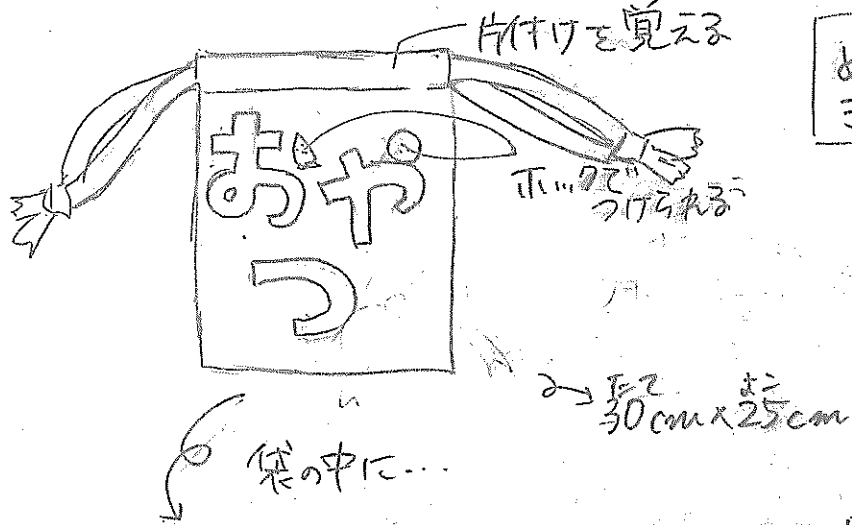 片付けを覚える
おや
つ
ホックで
つけられる
たて よこ
30cm×25cm
袋の中に…